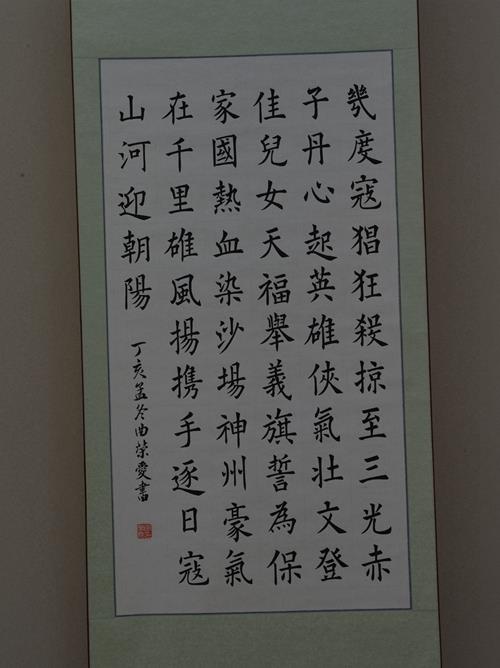 幾度寇猖狂殺掠至三光赤
子丹心起英雄俠氣壯文登
佳兒女天福舉義旗誓為保
家國熱血染沙場神州豪氣
在千里雄風揚携手逐日寇
山河迎朝陽
丁亥孟冬曲榮愛書